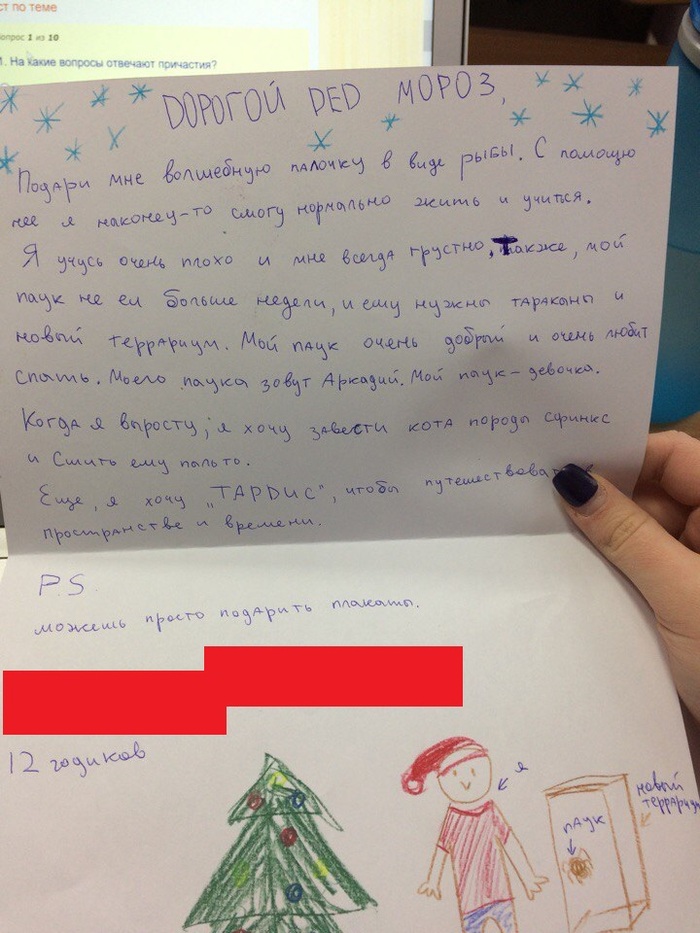 ст по теме
опрос 1 из 10
1. На какие вопросы отвечают причастия?
ДОРОГОЙ DED МОРОЗ,
Подари мне волшебную палочку в виде рыбы. С помощю
нее я наконец-то смогу нормально жить и учится.
Я учусь очень плохо и мне всегда грустно, Также, мой
паук не ел больше недели, и ему нужны тараканы и
новый террариум. Мой паук очень добрый и очень любит
спать. Моего паука зовут Аркадий. Мой паук - девочка.
Когда я выросту, я хочу завести кота породы сфинкс
и Сшить ему пальто.
Еще, я хочу "ТАРДИС", чтобы путешествова
пространстве и времени.
P.S.
можешь просто подарить плакаты.
12 годиков
я
новый
террариу
паук